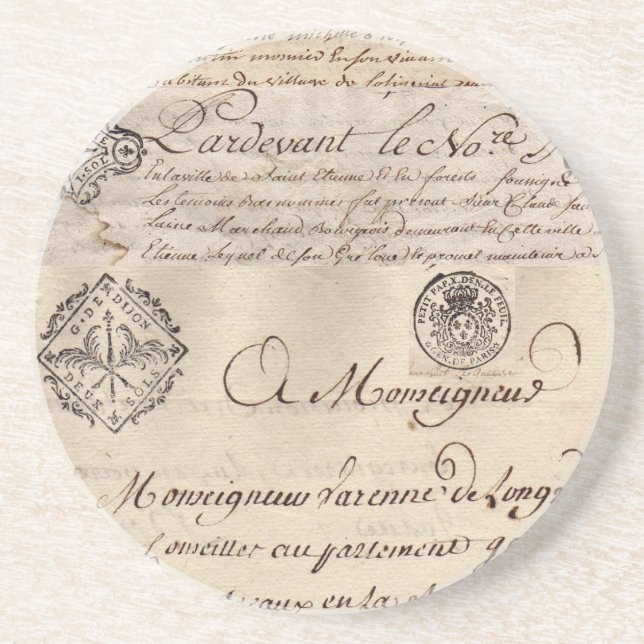 monsier En son vivant
habitant Du village de
Pardevant le No.re
En la ville de Saint Etienne et En forests soussigné
Les temoins Bas nommés fut present Sieur Claude
Marchand Bourgeois demeurant En Cette ville
Etienne Lequel de son Gré loue
L·SOL
G·DE DIJON
DEUX SOLS
PETIT PAP. X. DEN. LE FEUIL.
GEN. DE PARIS
A Monseigneur
Monseigneur Varenne de Long
Conseiller au parlement
en la